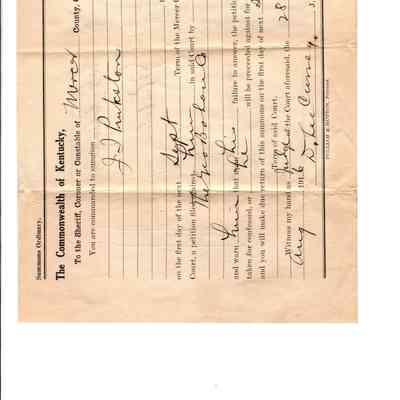 Summons Ordinary.
The Commonwealth of Kentucky,
To the Sheriff, Coroner or Constable of Mercer County,
You are commanded to summon
J D Pinkston
on the first day of the next Sept Term of the Mercer
Court, a petition filed against him in said Court by
The Geo Bohon Co
and warn him that upon his failure to answer, the petition
taken for confessed, or he will be proceeded against for
and you will make due return of this summons on the first day of next
Term of said Court.
Witness my hand as Judge of the Court aforesaid, the 28
Aug 191